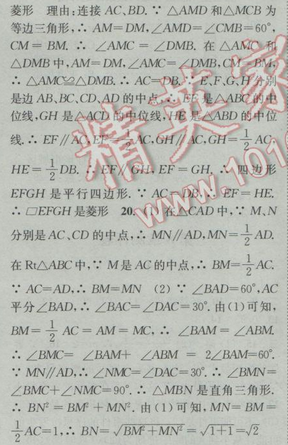 菱形 理由:连接 AC、BD.∵ △AMD 和△MCB 为
等边三角形,∴ AM=DM,∠AMD=∠CMB=60°,
CM=BM.∴ ∠AMC=∠DMB.在△AMC 和
△DMB 中,AM=DM,∠AMC=∠DMB,CM=BM,
∴ △AMC≌△DMB.∴ AC=DB.∵ E、F、G、H 分别
是边 AB、BC、CD、AD 的中点,∴ FE 是△ABC 的中
位线,GH 是△ACD 的中位线,HE 是△ABD 的中位
线.∴ EF∥AC, AC,GH∥AC,GH=1/2 AC,
HE=1/2 DB.∴ EF∥GH,EF=GH.∴ 四边形
EFGH 是平行四边形.∵ AC=DB,∴ EF=HE.
∴ ▱EFGH 是菱形 20. 在△CAD 中,∵ M、N
分别是 AC、CD 的中点,∴ MN∥AD,MN=1/2 AD.
在 Rt△ABC 中,∵ M 是 AC 的中点,∴ BM=1/2 AC.
∵ AC=AD,∴ BM=MN (2) ∵ ∠BAD=60°,AC
平分∠BAD,∴ ∠BAC=∠DAC=30°.由(1)可知,
BM=1/2 AC=AM=MC,∴ ∠BAM=∠ABM.
∴ ∠BMC=∠BAM+∠ABM=2∠BAM=60°.
∵ MN∥AD,∴ ∠NMC=∠DAC=30°.∴ ∠BMN=
∠BMC+∠NMC=90°.∴ △MBN 是直角三角形.
∴ BN²=BM²+MN².由(1)可知,MN=BM=
1/2 AC=1,∴ BN=√(BM²+MN²)=√(1+1)=√2
精英家
www.1010